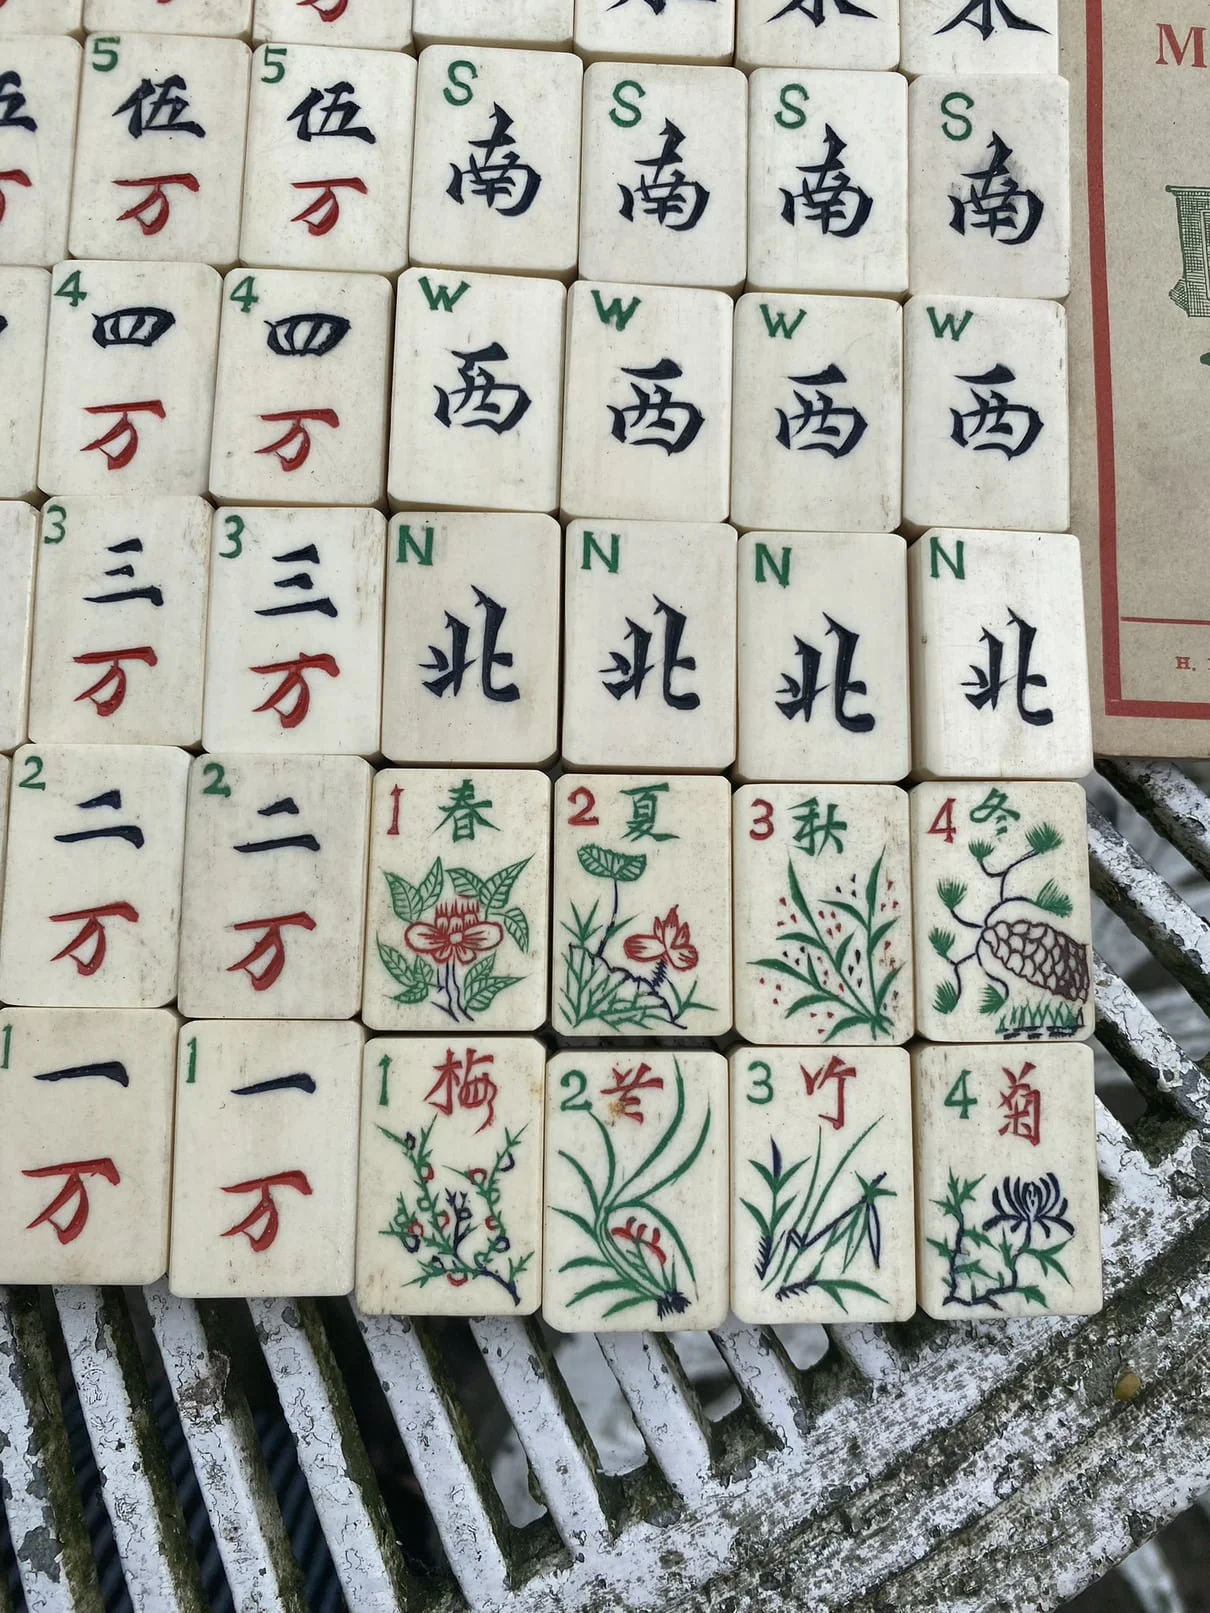 5 5 S S S S
伍 伍 伍 南 南 南 南
万 万 万
4 4 W W W W
四 四 西 西 西 西
万 万
3 3 N N N N
三 三 北 北 北 北
万 万
2 2 1 春 2 夏 3 秋 4 冬
二 二
万 万
1 1 1 梅 2 兰 3 竹 4 菊
一 一
万 万
M
H.